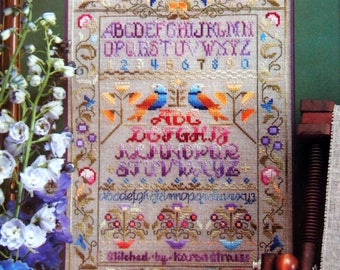 ABCDEFGHIJKLMN
OPQRSTUVWXYZ
1234567890
ABC
DEFGHIJ
KLMNOPQR
STUVWXYZ
abcdefghijklmnopqrstuvwxyz
Stitched by Karen